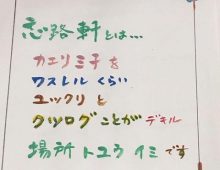 忘路軒とは…
カエリミチを
ワスレルくらい
ユックリと
クツログことがデキル
場所トユウイミです